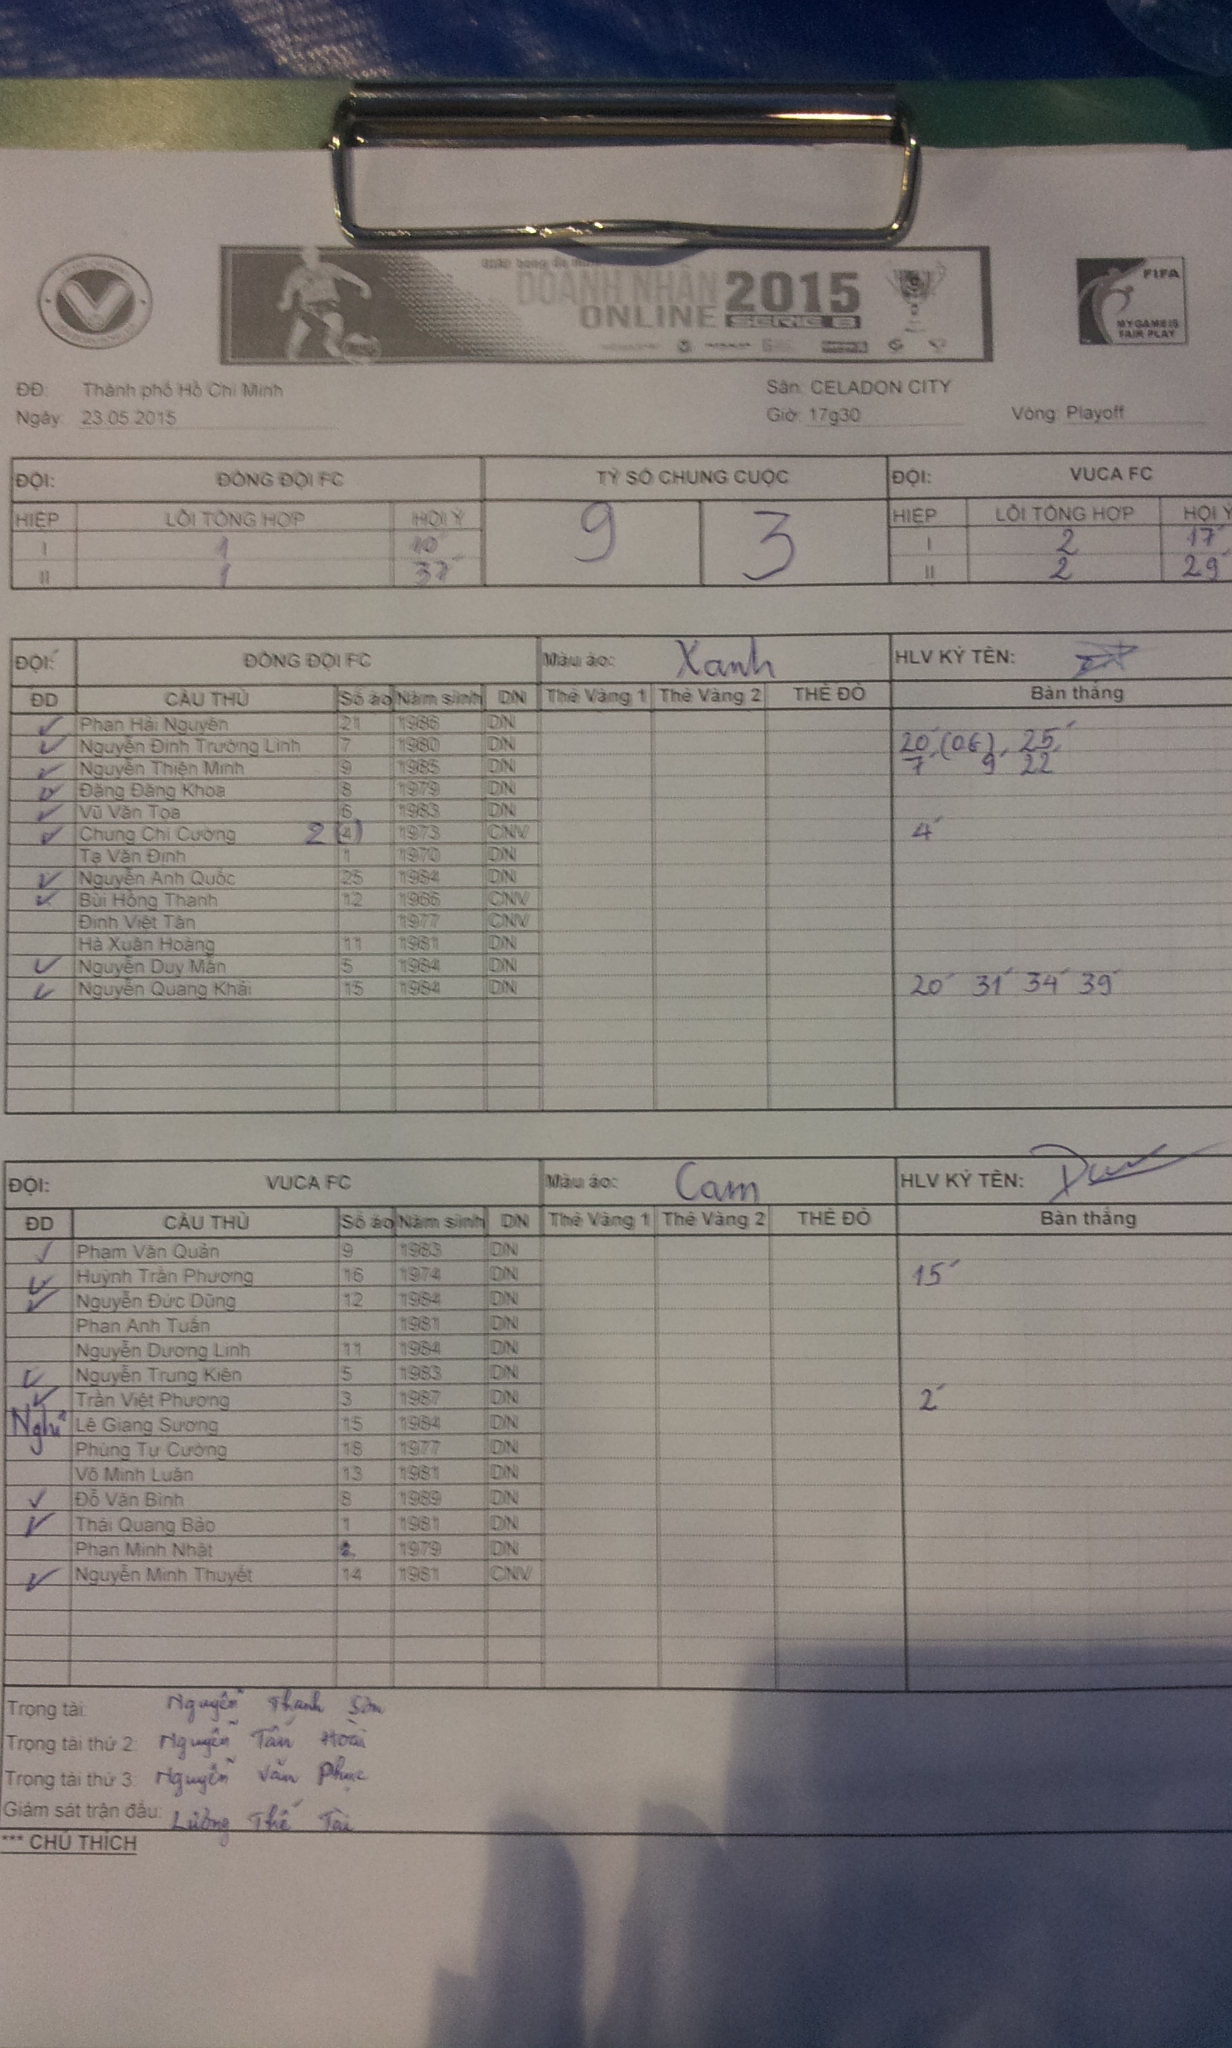 DOANH NHÂN 2015
ONLINE SERIE B
FIFA
MY GAME IS
FAIR PLAY
ĐĐ: Thành phố Hồ Chí Minh Sân: CELADON CITY
Ngày: 23.05.2015 Giờ: 17g30 Vòng: Playoff
ĐỘI: ĐỒNG ĐỘI FC TỶ SỐ CHUNG CUỘC ĐỘI: VUCA FC
HIỆP LỖI TỔNG HỢP HỘI Ý 9 3 HIỆP LỖI TỔNG HỢP HỘI Ý
I 1 10' I 2 17'
II 1 37' II 2 29'
ĐỘI: ĐỒNG ĐỘI FC Màu áo: Xanh HLV KÝ TÊN:
ĐD CẦU THỦ Số áo Năm sinh DN Thẻ Vàng 1 Thẻ Vàng 2 THẺ ĐỎ Bàn thắng
Phan Hải Nguyên 21 1986 DN
Nguyễn Đình Trường Linh 7 1980 DN 20' (OG), 25'
Nguyễn Thiện Minh 9 1985 DN 7' 9' 22'
Đặng Đăng Khoa 8 1979 DN
Vũ Văn Tọa 6 1983 DN
Chung Chí Cường 2 (4) 1973 CNV 4'
Tạ Văn Định 1 1970 DN
Nguyễn Anh Quốc 25 1984 DN
Bùi Hồng Thanh 12 1966 CNV
Đinh Việt Tân 1977 CNV
Hà Xuân Hoàng 11 1981 DN
Nguyễn Duy Mẫn 5 1984 DN
Nguyễn Quang Khải 15 1984 DN 20' 31' 34' 39'
ĐỘI: VUCA FC Màu áo: Cam HLV KÝ TÊN:
ĐD CẦU THỦ Số áo Năm sinh DN Thẻ Vàng 1 Thẻ Vàng 2 THẺ ĐỎ Bàn thắng
Phạm Văn Quản 9 1983 DN
Huỳnh Trần Phương 16 1974 DN 15'
Nguyễn Đức Dũng 12 1984 DN
Phan Anh Tuấn 1981 DN
Nguyễn Dương Linh 11 1984 DN
Nguyễn Trung Kiên 5 1983 DN
Trần Việt Phương 3 1987 DN 2'
Nghỉ Lê Giang Sương 15 1984 DN
Phùng Tư Cường 18 1977 DN
Võ Minh Luân 13 1981 DN
Đỗ Văn Bình 8 1989 DN
Thái Quang Bảo 1 1981 DN
Phan Minh Nhật 1979 DN
Nguyễn Minh Thuyết 14 1981 CNV
Trọng tài: Nguyễn Thanh Sơn
Trọng tài thứ 2: Nguyễn Tấn Hoài
Trọng tài thứ 3: Nguyễn Văn Phục
Giám sát trận đấu: Lường Thế Tài
*** CHÚ THÍCH